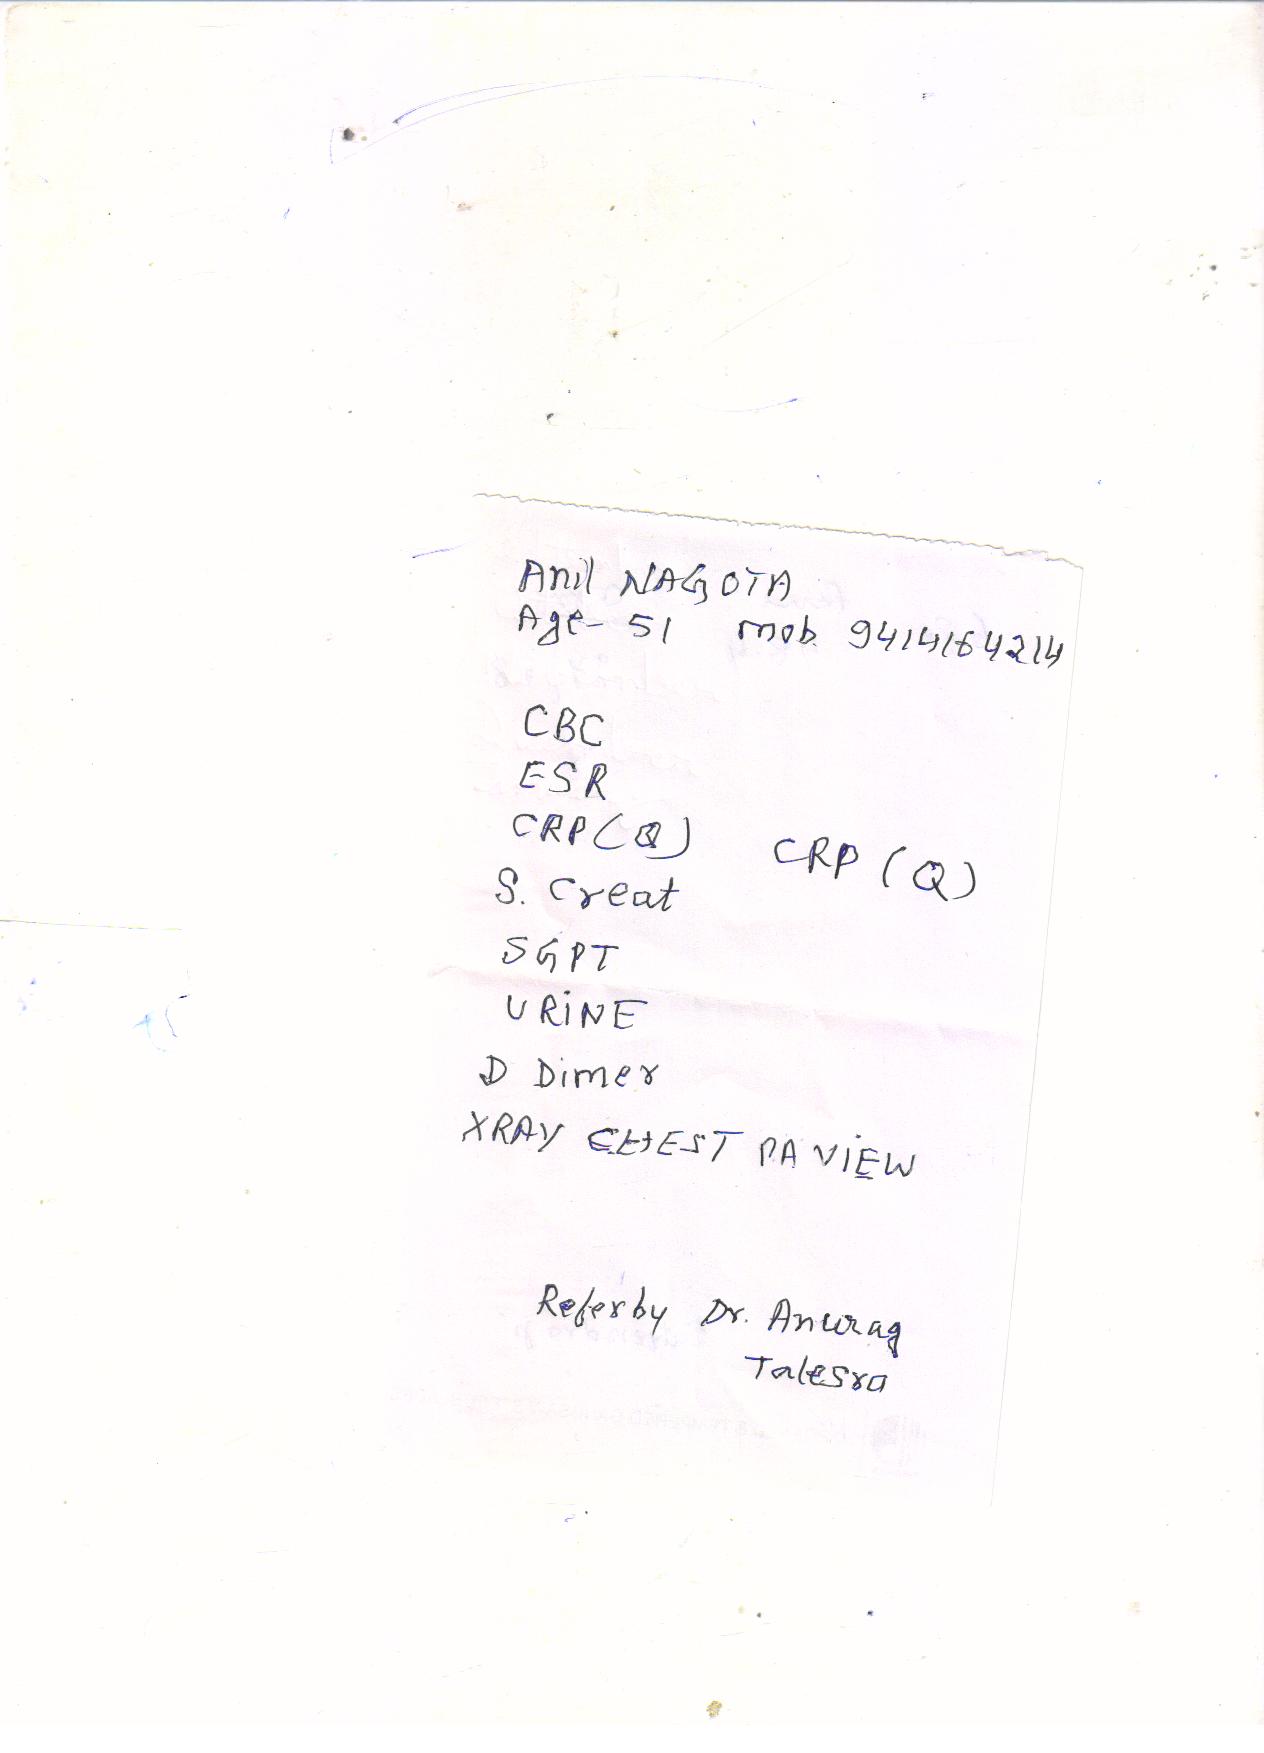 Anil NAGOTA
Age- 51 mob. 9414164214
CBC
ESR
CRP(Q) CRP (Q)
S. Creat
SGPT
URINE
D Dimer
XRAY CHEST PA VIEW
Refer by Dr. Anurag
Talesra